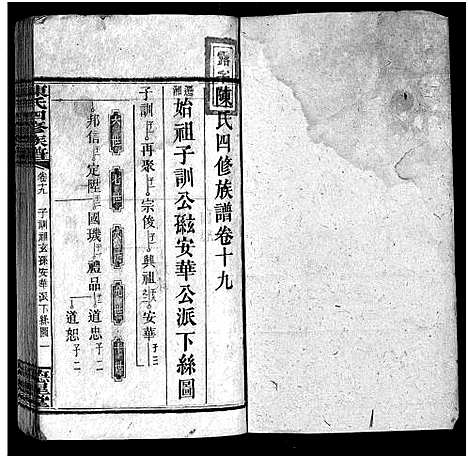 陳氏四修族譜卷十九
遷湘始祖子訓公玆安華公派下絲圖
子訓 子一 再聚 子一 宗俊 子一 興祖 安華 子三
邦信 子一 定陞 子一 國璣 子一 禮品 道忠 子二
道恕 子二
陳氏四修族譜
卷十九 子訓祖玄孫安華派下絲圖 一
星堂